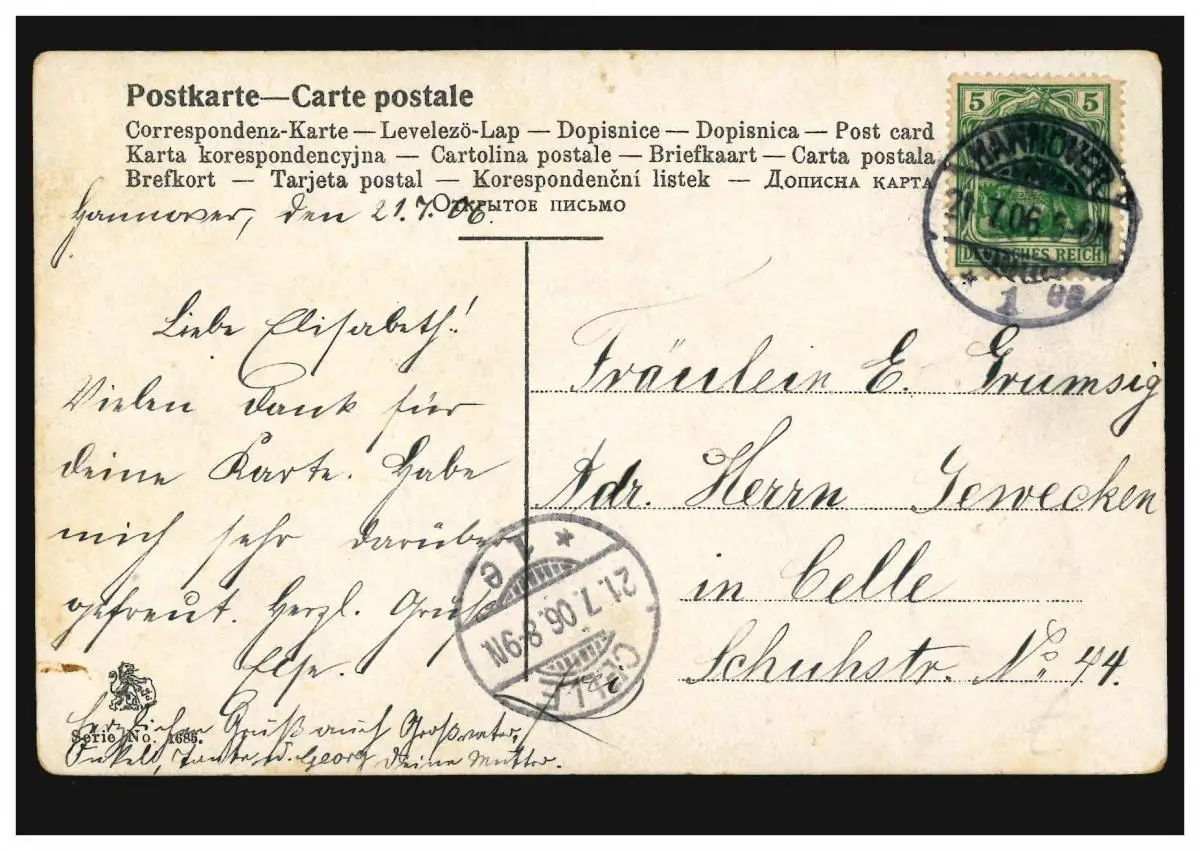 Postkarte—Carte postale
Correspondenz-Karte — Levelezö-Lap — Dopisnice — Dopisnica — Post card
Karta korespondencyjna — Cartolina postale — Briefkaart — Carta postala
Brefkort — Tarjeta postal — Korespondenční listek — Дописна карта
Открытое письмо
Hannover, den 21.7.06.
Liebe Elisabeth!
Vielen Dank für
deine Karte. Habe
mich sehr darüber
gefreut. Herzl. Gruß
Else.
Herzlichen Gruß auch Großvater,
Onkel, Tante u. Georg Deine Mutter.
Serie No. 1685.
5 5
DEUTSCHES REICH
HANNOVER
21.7.06. 5-6N
1
Fräulein E. Grumsig
Adr. Herrn Gewecken
in Celle
Schuhstr. No 44.
CELLE
21.7.06.8-9N
* 1 e